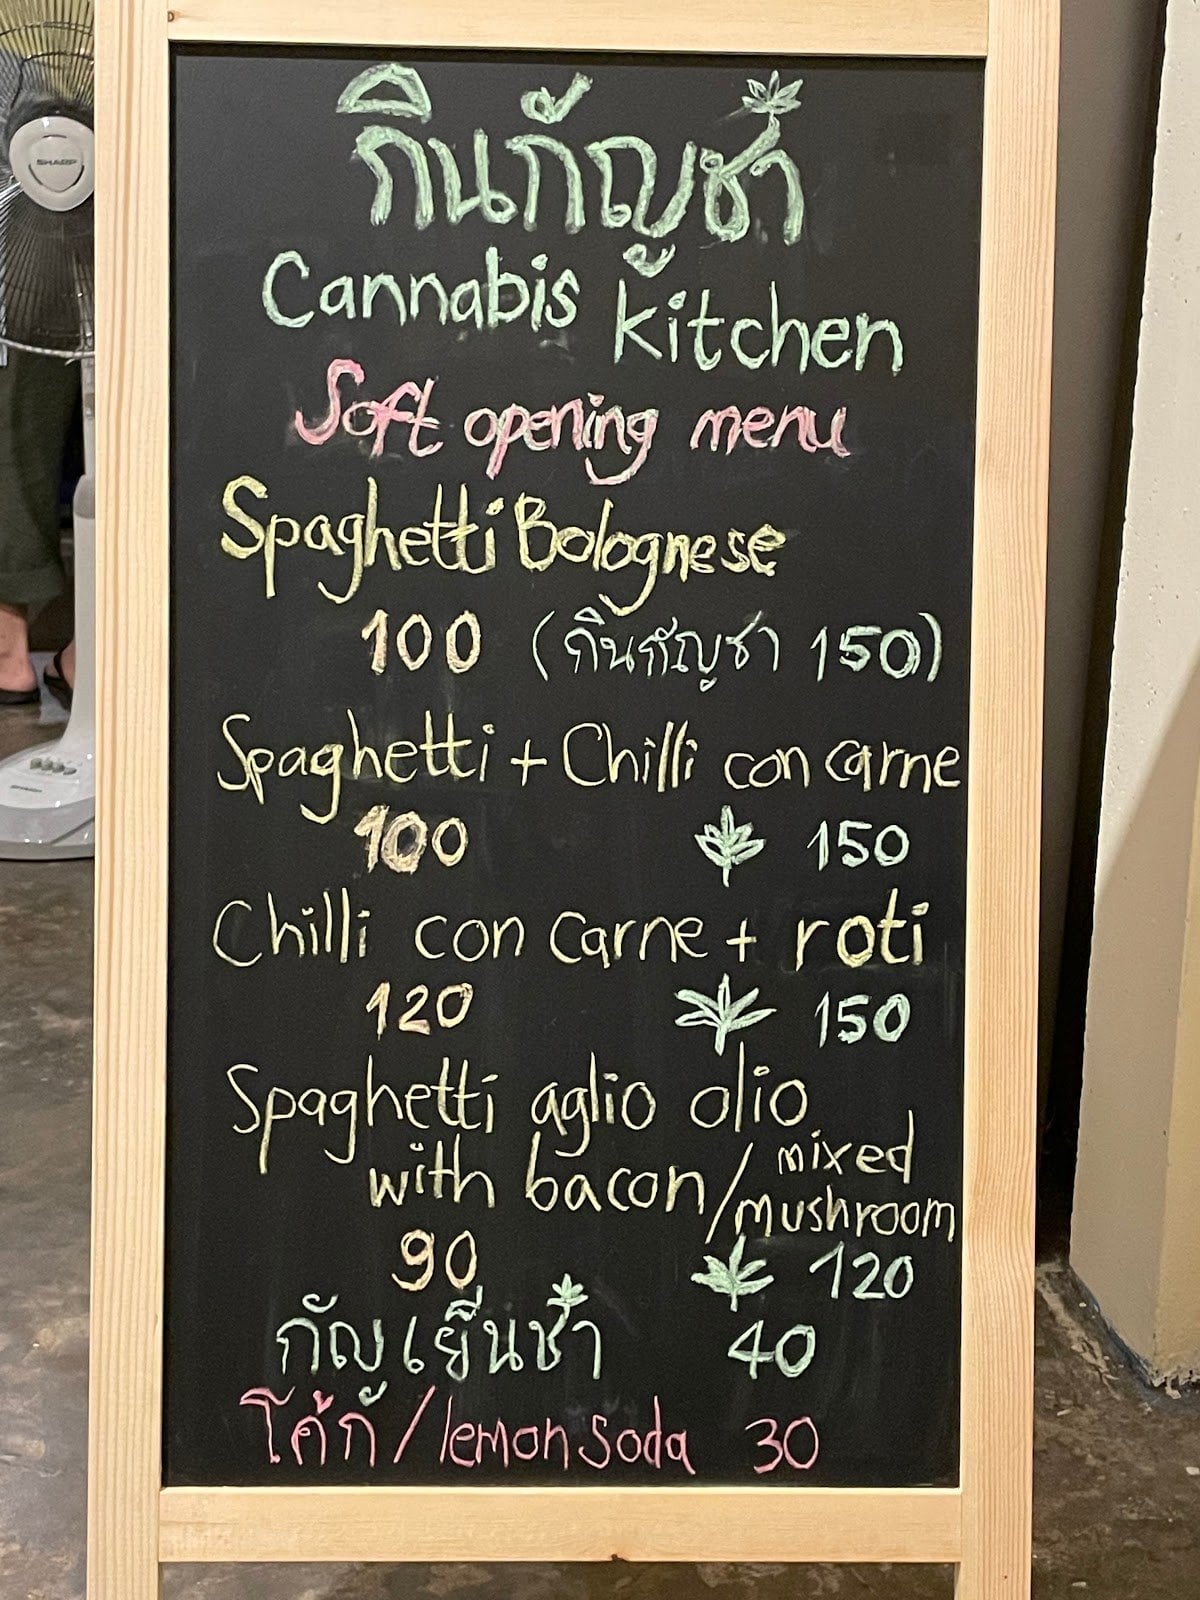 กินกัญชา
Cannabis kitchen
Soft opening menu
Spaghetti Bolognese
100 (กินกัญชา 150)
Spaghetti + Chilli con carne
100 150
Chilli con carne + roti
120 150
Spaghetti aglio olio
with bacon/mixed mushroom
90 120
กัญเยีนช่ำ 40
โค้ก/lemon soda 30
SHARP
SHARP